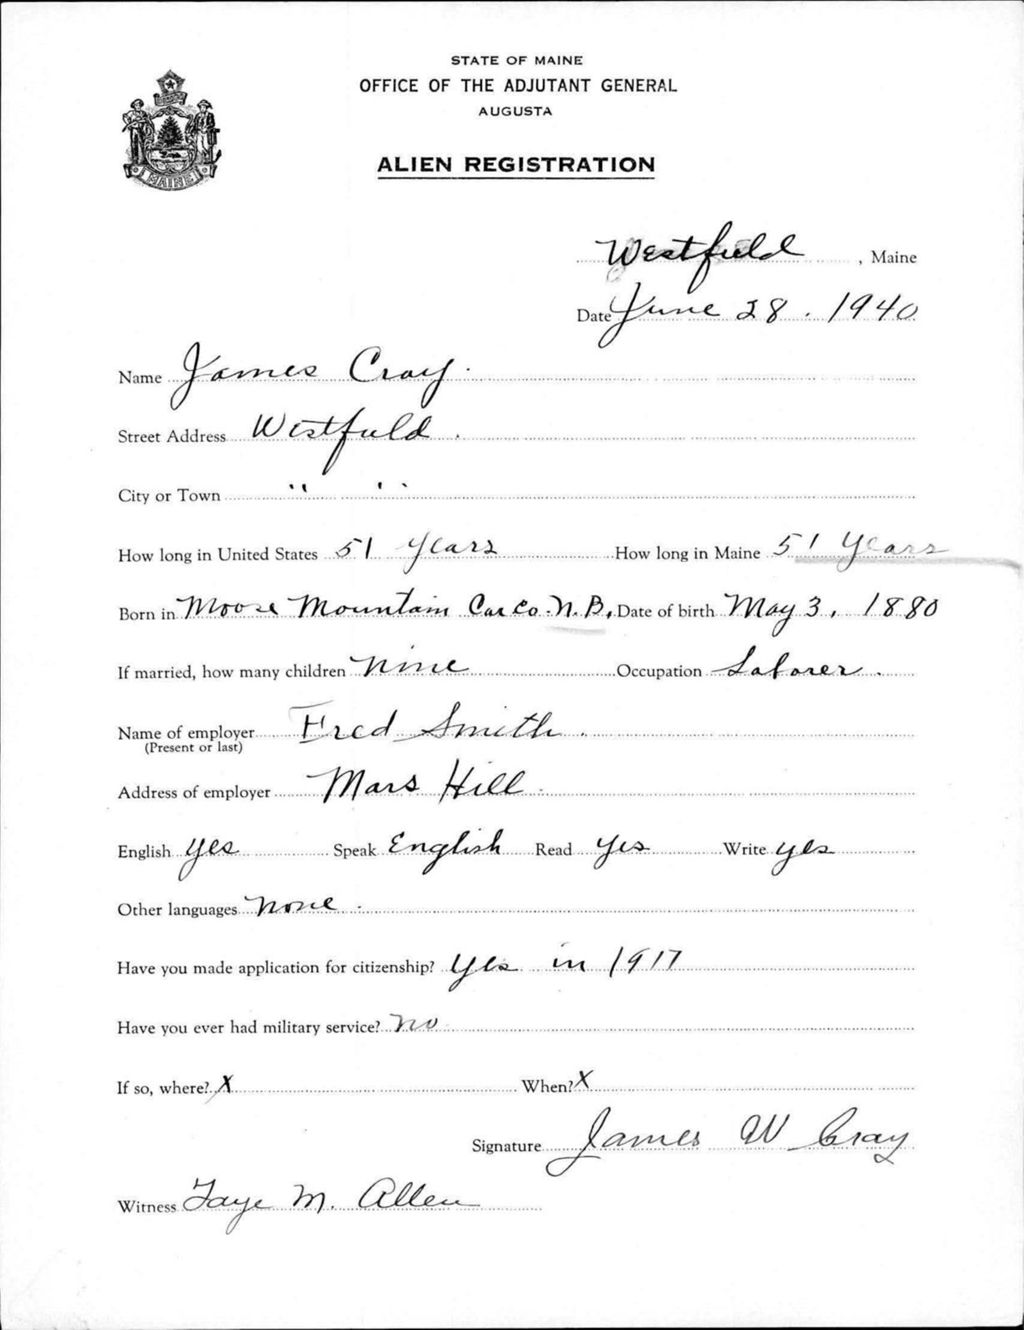 STATE OF MAINE
OFFICE OF THE ADJUTANT GENERAL
AUGUSTA
ALIEN REGISTRATION
MAINE
Westfield, Maine
Date June 28. 1940
Name James Cray.
Street Address Westfield.
City or Town " "
How long in United States 51 Years How long in Maine 51 Years
Born in Moose Mountain Car Co. N.B. Date of birth May 3, 1880
If married, how many children Nine Occupation Laborer.
Name of employer Fred Smith.
(Present or last)
Address of employer Mars Hill.
English yes Speak English Read Yes Write yes
Other languages None.
Have you made application for citizenship? Yes in 1917
Have you ever had military service? No
If so, where? X When? X
Signature James W Cray
Witness Faye M. Allen